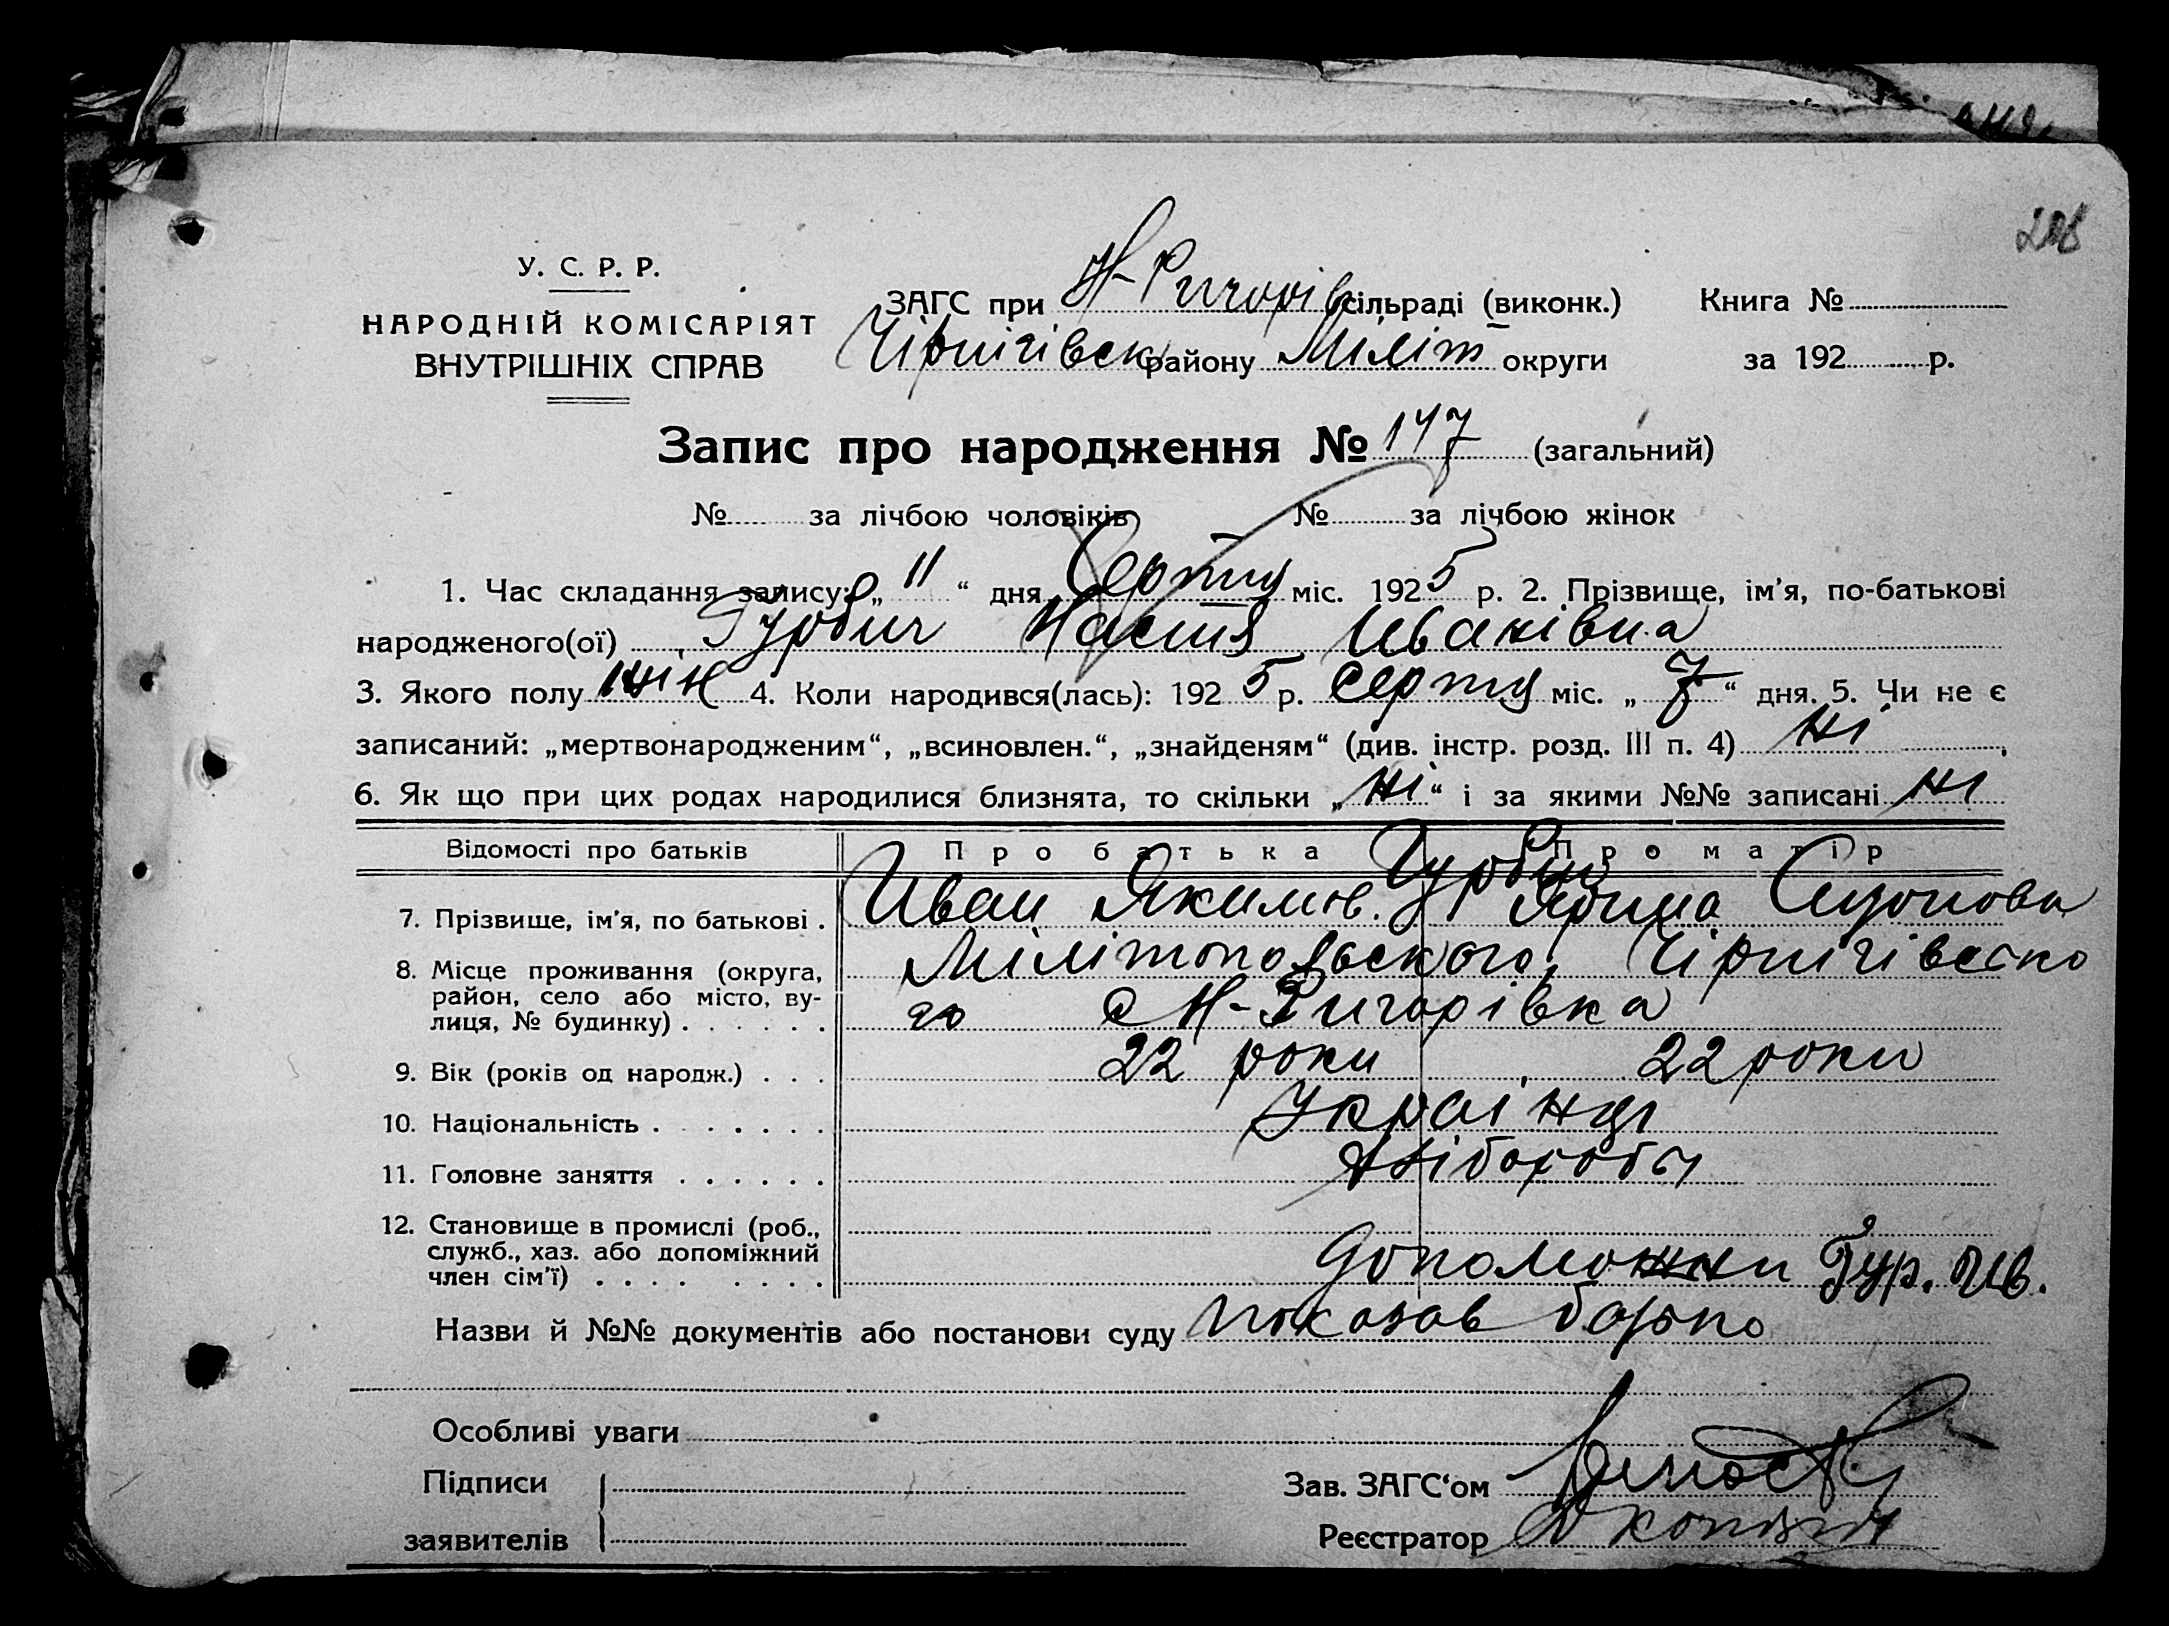 208
У. С. Р. Р.
НАРОДНІЙ КОМІСАРІЯТ
ВНУТРІШНІХ СПРАВ
ЗАГС при Н-Ригорів сільраді (виконк.)
Чірнігівськ району Міліт округи
Книга №
за 192 р.
Запис про народження № 147 (загальний)
№ за лічбою чоловіків № за лічбою жінок
1. Час складання запису: „ 11 “ дня Серпня міс. 1925 р. 2. Прізвище, ім'я, по-батькові
народженого(ої) Гурбич Настя Иванівна
3. Якого полу жін 4. Коли народився(лась): 1925 р. Серпня міс. „ 7 “ дня. 5. Чи не є
записаний: „мертвонародженим“, „всиновлен.“, „знайденям“ (див. інстр. розд. III п. 4) Ні
6. Як що при цих родах народилися близнята, то скільки „ Ні “ і за якими №№ записані Ні
Відомості про батьків Про батька Про матір
7. Прізвище, ім'я, по батькові . Иван Якимов. Гурбич Ярина
8. Місце проживання (округа, Мілітопольського, Чірнігівсько
район, село або місто, ву-
лиця, № будинку) . . . . . . го с Н-Ригорівка
9. Вік (років од народж.) . . . 22 роки 22 роки
10. Національність . . . . . . . Українці
11. Головне заняття . . . . . . Хліборобы
12. Становище в промислі (роб.,
служб., хаз. або допоміжний
член сім'ї) . . . . . . . . Допоможни Гур. Ив.
Назви й №№ документів або постанови суду показав батько
Особливі уваги
Підписи
заявителів
Зав. ЗАГС‘ом
Реєстратор